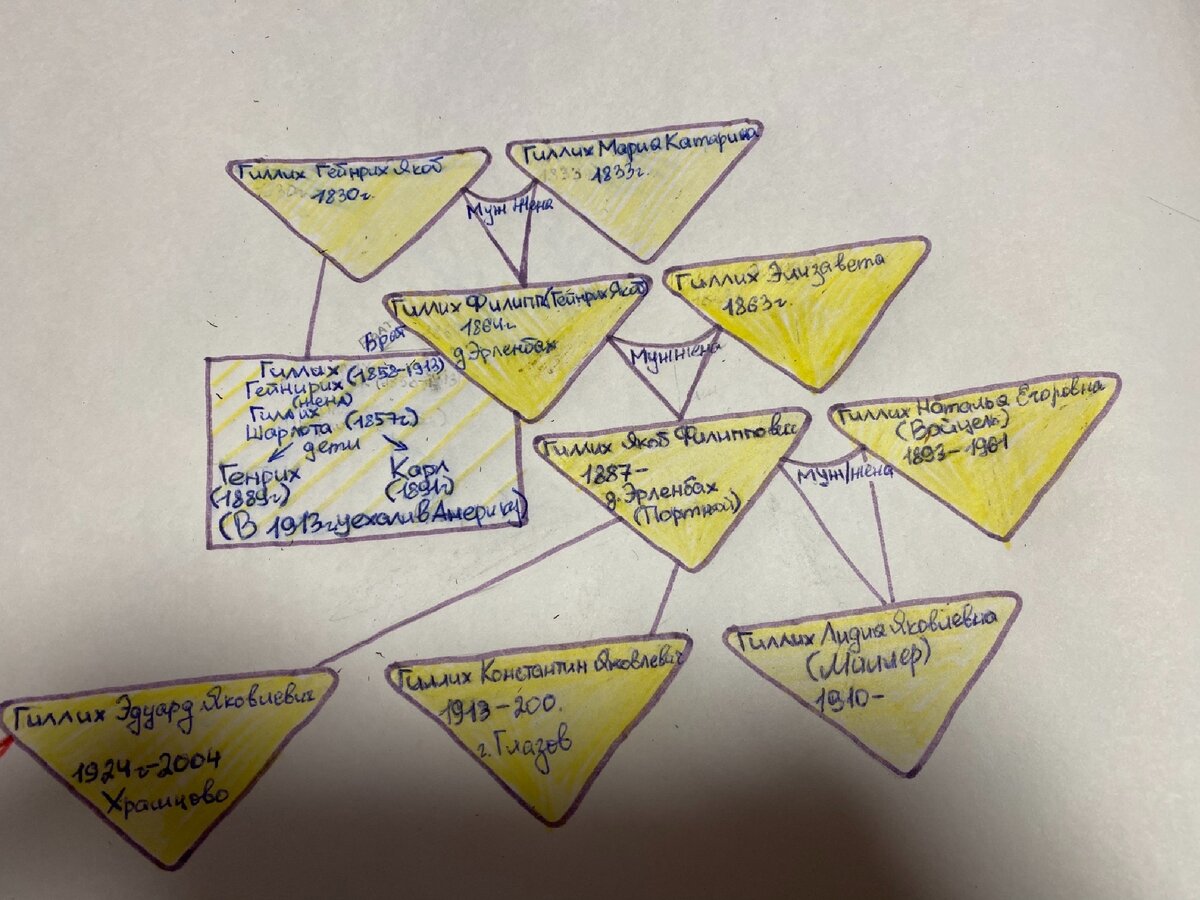 Гиллих Гейнрих Якоб
1830г.
Гиллих Мария Катарина
1833 1833г.
Муж Жена
Гиллих Филипп (Гейнрих Якоб)
1864г
д Эрленбах
Гиллих Элизавета
1863г.
Брат
Муж жена
Гиллих (1858-1913)
Гейнирих
(жена)
Гиллих
Шарлота (1857г)
дети
Генрих
(1889г)
Карл
(1891г)
(В 1913г уехали в Америку)
Гиллих Якоб Филиппович
1887-
д. Эрленбах
(Портной)
Гиллих Наталья Егоровна
(Вайцель)
1893-1961
Муж/жена
Гиллих Эдуард Яковлевич
1924г-2004
Храмцово
Гиллих Константин Яковлевич
1913-200.
г. Глазов
Гиллих Лидия Яковлевна
(Миллер)
1910-